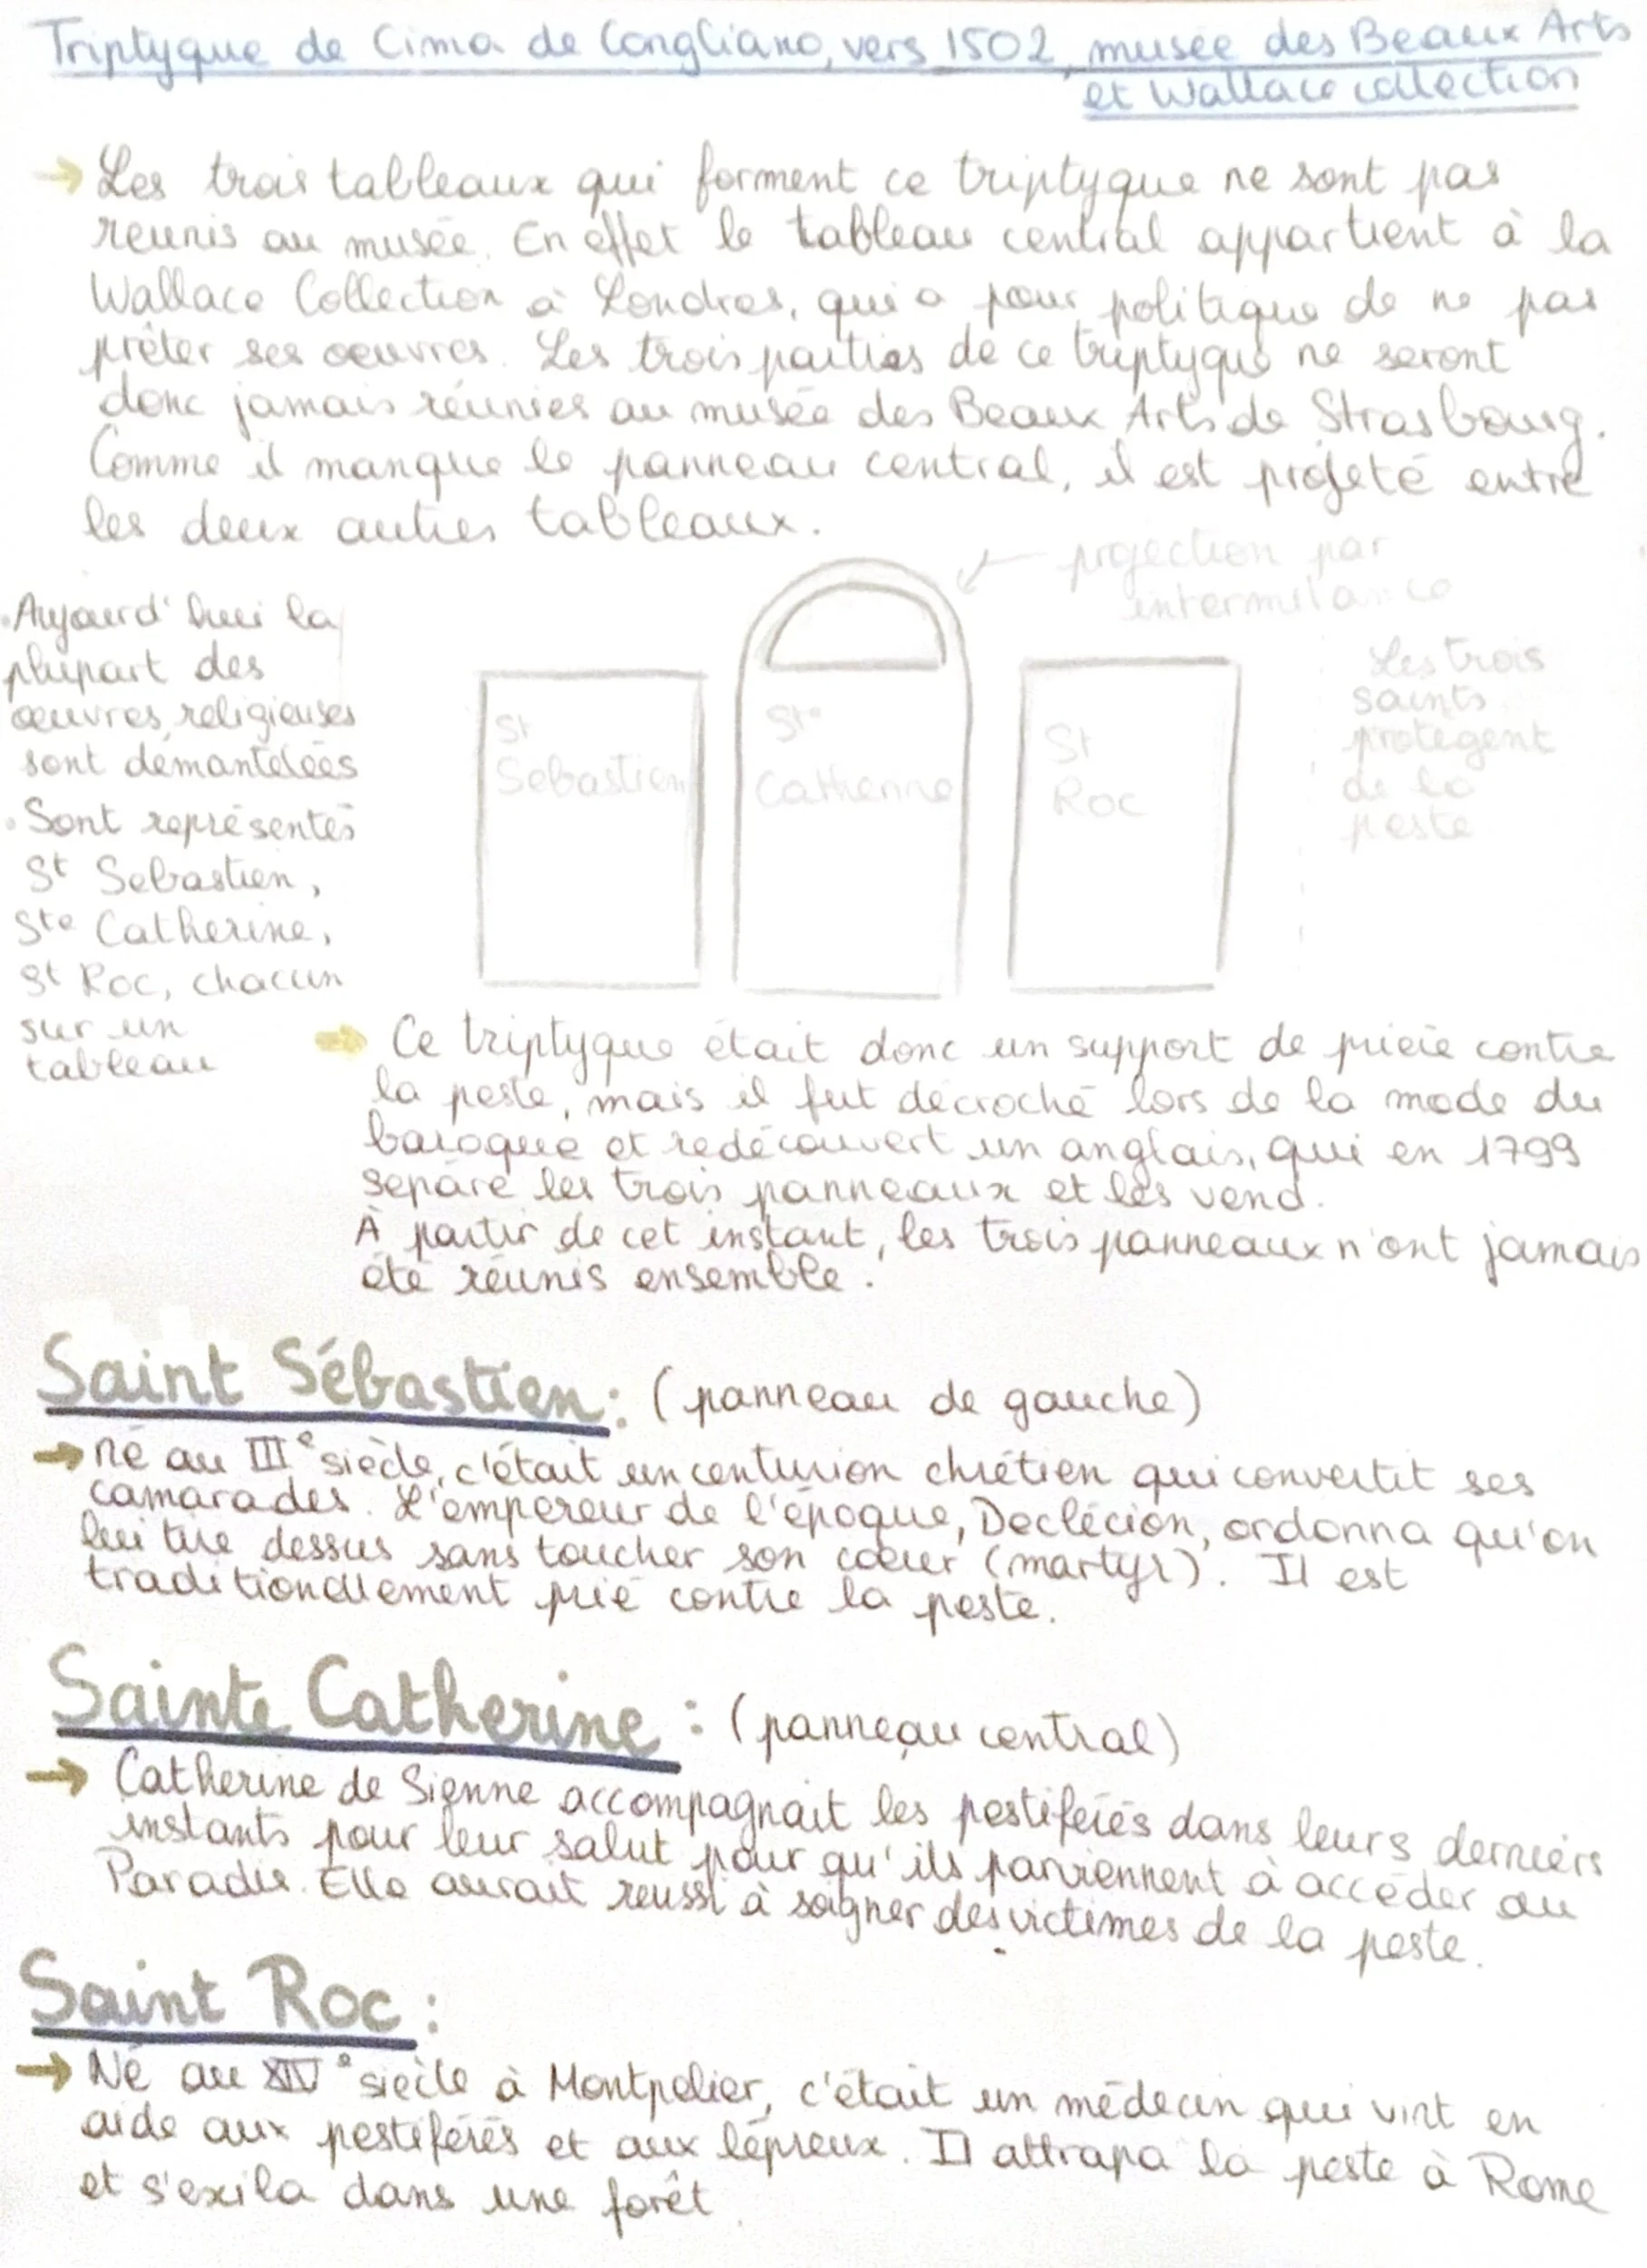 Triptyque de Cima de Congliano, vers 1502, musée des Beaux Arts
et Wallace collection
→ Les trois tableaux qui forment ce triptyque ne sont pas
réunis au musée. En effet le tableau central appartient à la
Wallace Collection à Londres, qui a pour politique de ne pas
prêter ses œuvres. Les trois parties de ce triptyque ne seront
donc jamais réunies au musée des Beaux Arts de Strasbourg.
Comme il manque le panneau central, il est projeté entre
les deux autres tableaux.
← projection par
intermitance
• Aujourd'hui la
plupart des
œuvres religieuses
sont démantelées
• Sont représentés
St Sebastien,
Ste Catherine,
St Roc, chacun
sur un
tableau
St
Sebastien
Ste
Catherine
St
Roc
Les trois
saints
protègent
de la
peste
→ Ce triptyque était donc un support de prière contre
la peste, mais il fut décroché lors de la mode du
baroque et redécouvert un anglais, qui en 1799
sépare les trois panneaux et les vend.
À partir de cet instant, les trois panneaux n'ont jamais
été réunis ensemble.
Saint Sébastien : (panneau de gauche)
→ né au IIIe siècle, c'était un centurion chrétien qui convertit ses
camarades. L'empereur de l'époque, Declécion, ordonna qu'on
lui tire dessus sans toucher son cœur (martyr). Il est
traditionellement prié contre la peste.
Sainte Catherine : (panneau central)
→ Catherine de Sienne accompagnait les pestiférés dans leurs derniers
instants pour leur salut pour qu'ils parviennent à accéder au
Paradis. Elle aurait réussi à soigner des victimes de la peste.
Saint Roc :
→ Né au XIVe siècle à Montpelier, c'était un médecin qui vint en
aide aux pestiférés et aux lépreux. Il attrapa la peste à Rome
et s'exila dans une forêt.